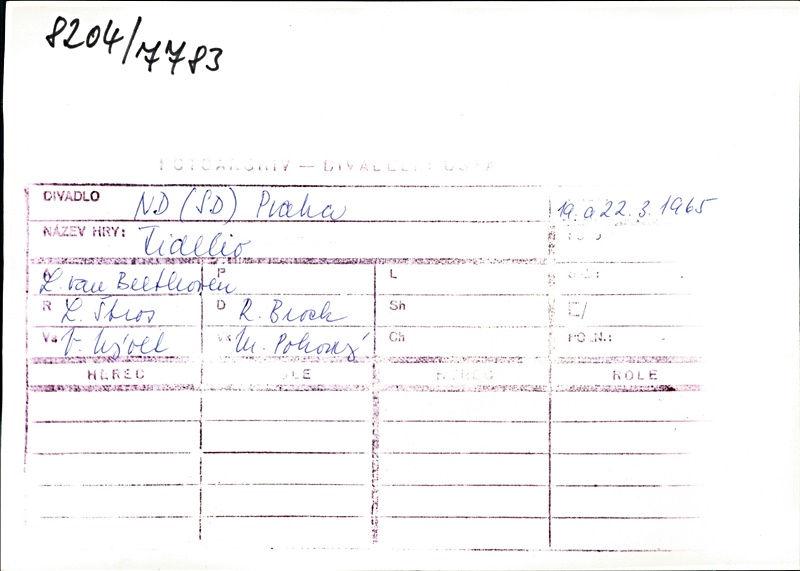 8204/7783
FOTOARCHIV — DIVADELNÍ ÚSTA
DIVADLO ND (SD) Praha 19. a 22. 3. 1965
NÁZEV HRY: Fidelio
L. van Beethoven P L
R L. Štros D R. Brock Sh E/
Vs V. Nývlt Vk M. Pokorný Ch PO.N.:
HEREC ROLE HEREC ROLE